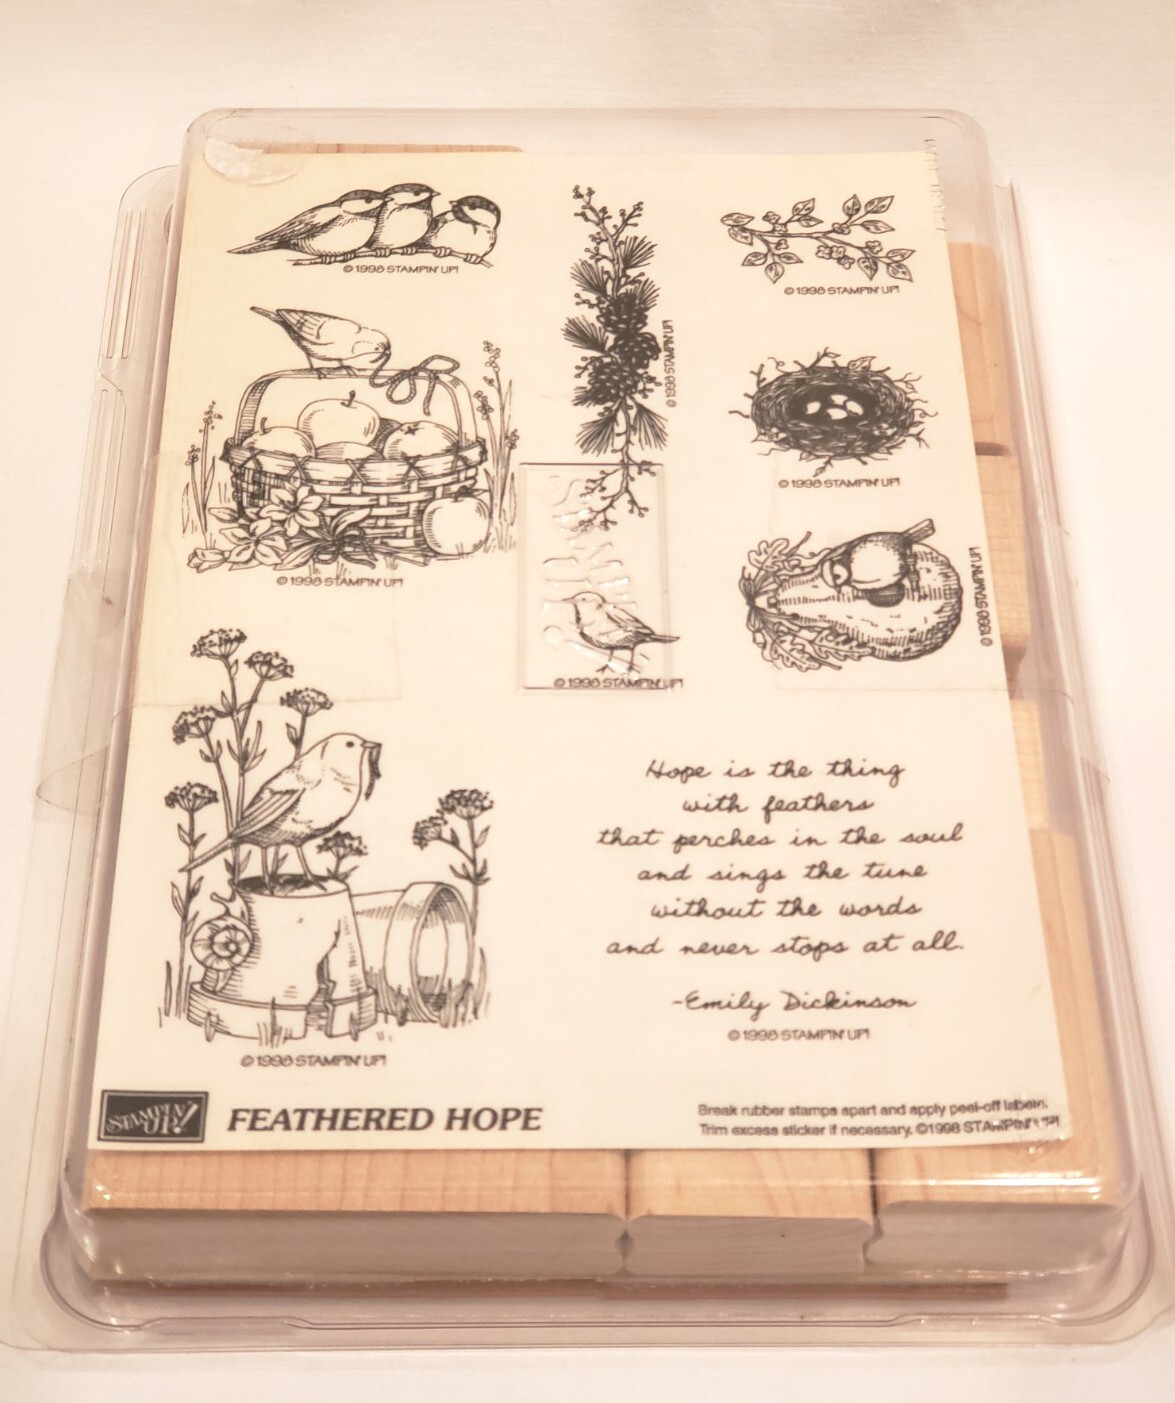 © 1998 STAMPIN' UP!
© 1998 STAMPIN' UP!
© 1998 STAMPIN' UP!
© 1998 STAMPIN' UP!
© 1998 STAMPIN' UP!
© 1998 STAMPIN' UP!
© 1998 STAMPIN' UP!
Hope is the thing
with feathers
that perches in the soul
and sings the tune
without the words
and never stops at all.
-Emily Dickinson
© 1998 STAMPIN' UP!
© 1998 STAMPIN' UP!
STAMPIN'
UP!
FEATHERED HOPE
Break rubber stamps apart and apply peel-off labels.
Trim excess sticker if necessary. ©1998 STAMPIN' UP!